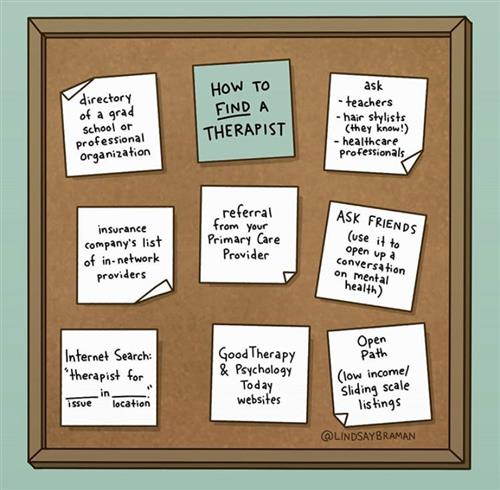 directory
of a grad
school or
professional
organization
HOW TO
FIND A
THERAPIST
ask
- teachers
- hair stylists
(they know!)
- healthcare
professionals
insurance
company's list
of in-network
providers
referral
from your
Primary Care
Provider
ASK FRIENDS
(use it to
open up a
conversation
on mental
health)
Internet Search:
"therapist for
____ in ____."
issue location
GoodTherapy
& Psychology
Today
websites
Open
Path
(low income/
Sliding scale
listings
@LINDSAYBRAMAN